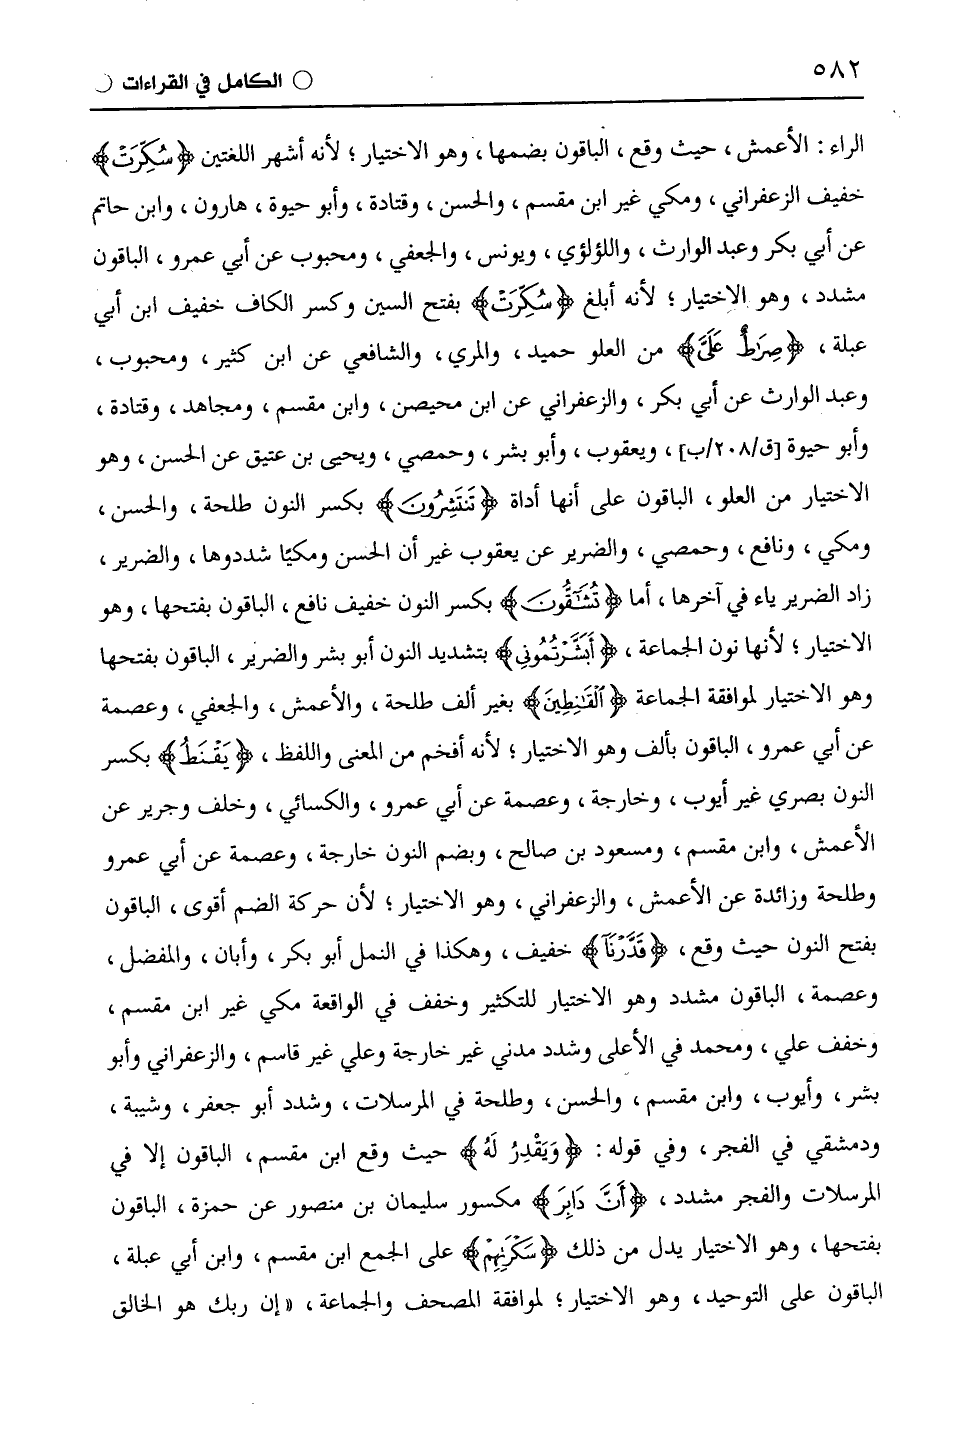 ٥٨٢
الكامل في القراءات
الراء: الأعمش، حيث وقع، الباقون بضمها، وهو الاختيار؛ لأنه أشهر اللغتين ﴿سُكِّرَتْ﴾
خفيف الزعفراني، ومكي غير ابن مقسم، والحسن، وقتادة، وأبو حيوة، هارون، وابن حاتم
عن أبي بكر وعبد الوارث، واللؤلؤي، ويونس، والجعفي، ومحبوب عن أبي عمرو، الباقون
مشدد، وهو الاختيار؛ لأنه أبلغ ﴿سُكِّرَتْ﴾ بفتح السين وكسر الكاف خفيف ابن أبي
عبلة، ﴿صِرَاطٌ عَلَيَّ﴾ من العلو حميد، والمري، والشافعي عن ابن كثير، ومحبوب،
وعبد الوارث عن أبي بكر، والزعفراني عن ابن محيصن، وابن مقسم، ومجاهد، وقتادة،
وأبو حيوة [ق/٢٠٨/ب]، ويعقوب، وأبو بشر، وحمصي، ويحيى بن عتيق عن الحسن، وهو
الاختيار من العلو، الباقون على أنها أداة ﴿تَنتَشِرُونَ﴾ بكسر النون طلحة، والحسن،
ومكي، ونافع، وحمصي، والضرير عن يعقوب غير أن الحسن ومكيًا شددوها، والضرير،
زاد الضرير ياء في آخرها، أما ﴿تُشَاقُّونَ﴾ بكسر النون خفيف نافع، الباقون بفتحها، وهو
الاختيار؛ لأنها نون الجماعة، ﴿أَبَشَّرْتُمُونِي﴾ بتشديد النون أبو بشر والضرير، الباقون بفتحها
وهو الاختيار لموافقة الجماعة ﴿الْقَانِطِينَ﴾ بغير ألف طلحة، والأعمش، والجعفي، وعصمة
عن أبي عمرو، الباقون بألف وهو الاختيار؛ لأنه أفخم من المعنى واللفظ، ﴿يَقْنَطُ﴾ بكسر
النون بصري غير أيوب، وخارجة، وعصمة عن أبي عمرو، والكسائي، وخلف وجرير عن
الأعمش، وابن مقسم، ومسعود بن صالح، وبضم النون خارجة، وعصمة عن أبي عمرو
وطلحة وزائدة عن الأعمش، والزعفراني، وهو الاختيار؛ لأن حركة الضم أقوى، الباقون
بفتح النون حيث وقع، ﴿قَدَّرْنَا﴾ خفيف، وهكذا في النمل أبو بكر، وأبان، والمفضل،
وعصمة، الباقون مشدد وهو الاختيار للتكثير وخفف في الواقعة مكي غير ابن مقسم،
وخفف علي، ومحمد في الأعلى وشدد مدني غير خارجة وعلي غير قاسم، والزعفراني وأبو
بشر، وأيوب، وابن مقسم، والحسن، وطلحة في المرسلات، وشدد أبو جعفر، وشيبة،
ودمشقي في الفجر، وفي قوله: ﴿وَيَقْدِرُ لَهُ﴾ حيث وقع ابن مقسم، الباقون إلا في
المرسلات والفجر مشدد، ﴿أَنَّ دَابِرَ﴾ مكسور سليمان بن منصور عن حمزة، الباقون
بفتحها، وهو الاختيار يدل من ذلك ﴿سَكْرَتِهِمْ﴾ على الجمع ابن مقسم، وابن أبي عبلة،
الباقون على التوحيد، وهو الاختيار؛ لموافقة المصحف والجماعة، «إن ربك هو الخالق